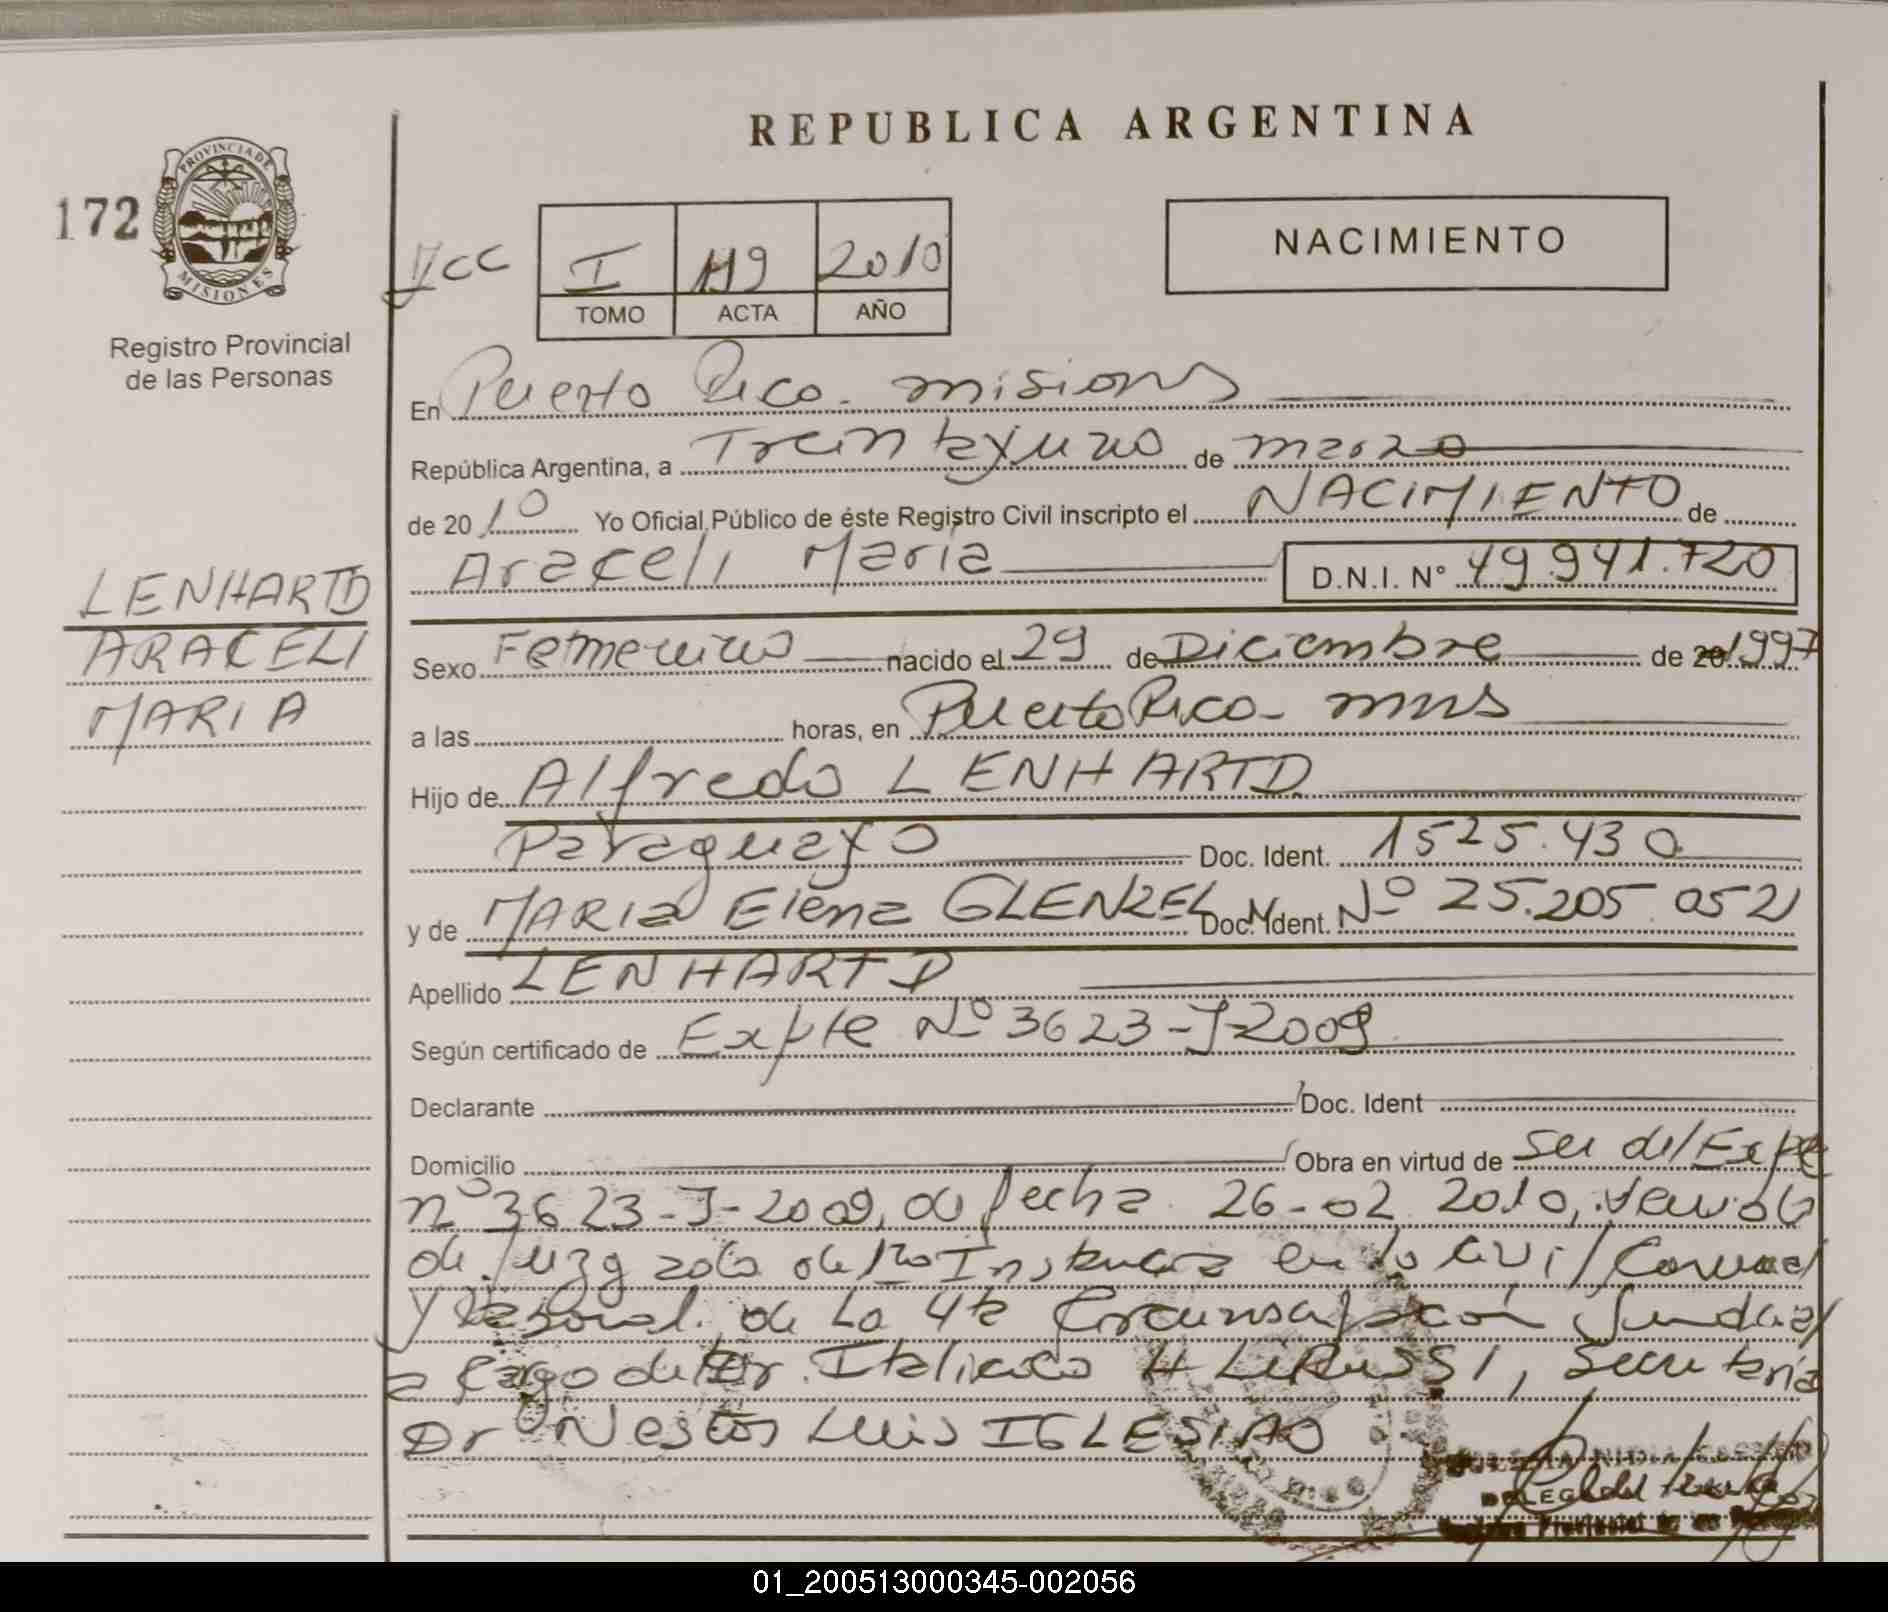 REPUBLICA ARGENTINA
172
PROVINCIA DE MISIONES
Registro Provincial
de las Personas
I 119 2010
TOMO ACTA AÑO
NACIMIENTO
En Puerto Rico - misions
República Argentina, a Treintayuno de marzo
de 20 10 Yo Oficial Público de éste Registro Civil inscripto el NACIMIENTO de
Araceli Maria D.N.I. N° 49.941.720
LENHARTD
ARACELI
MARIA
Sexo Femenino nacido el 29 de Diciembre de 20 1997
a las horas, en Puerto Rico - mns
Hijo de Alfredo LENHARTD
Paraguayo Doc. Ident. 1525.430
y de MARIA Elena GLENZEL Doc. Ident. Nº 25.205.052
Apellido LENHARTD
Según certificado de Expte Nº 3623-J-2009
Declarante Doc. Ident
Domicilio Obra en virtud de ser del Expte
nº 3623-J-2009, de fecha 26-02 2010,
de Juzgado de 1ra Instancia en lo Civil Comercial
y Laboral de La 4ta Circunscripción Judicial
a cargo del Dr. Secretaria
Dr Nestor Luis IGLESIAS
01_200513000345-002056